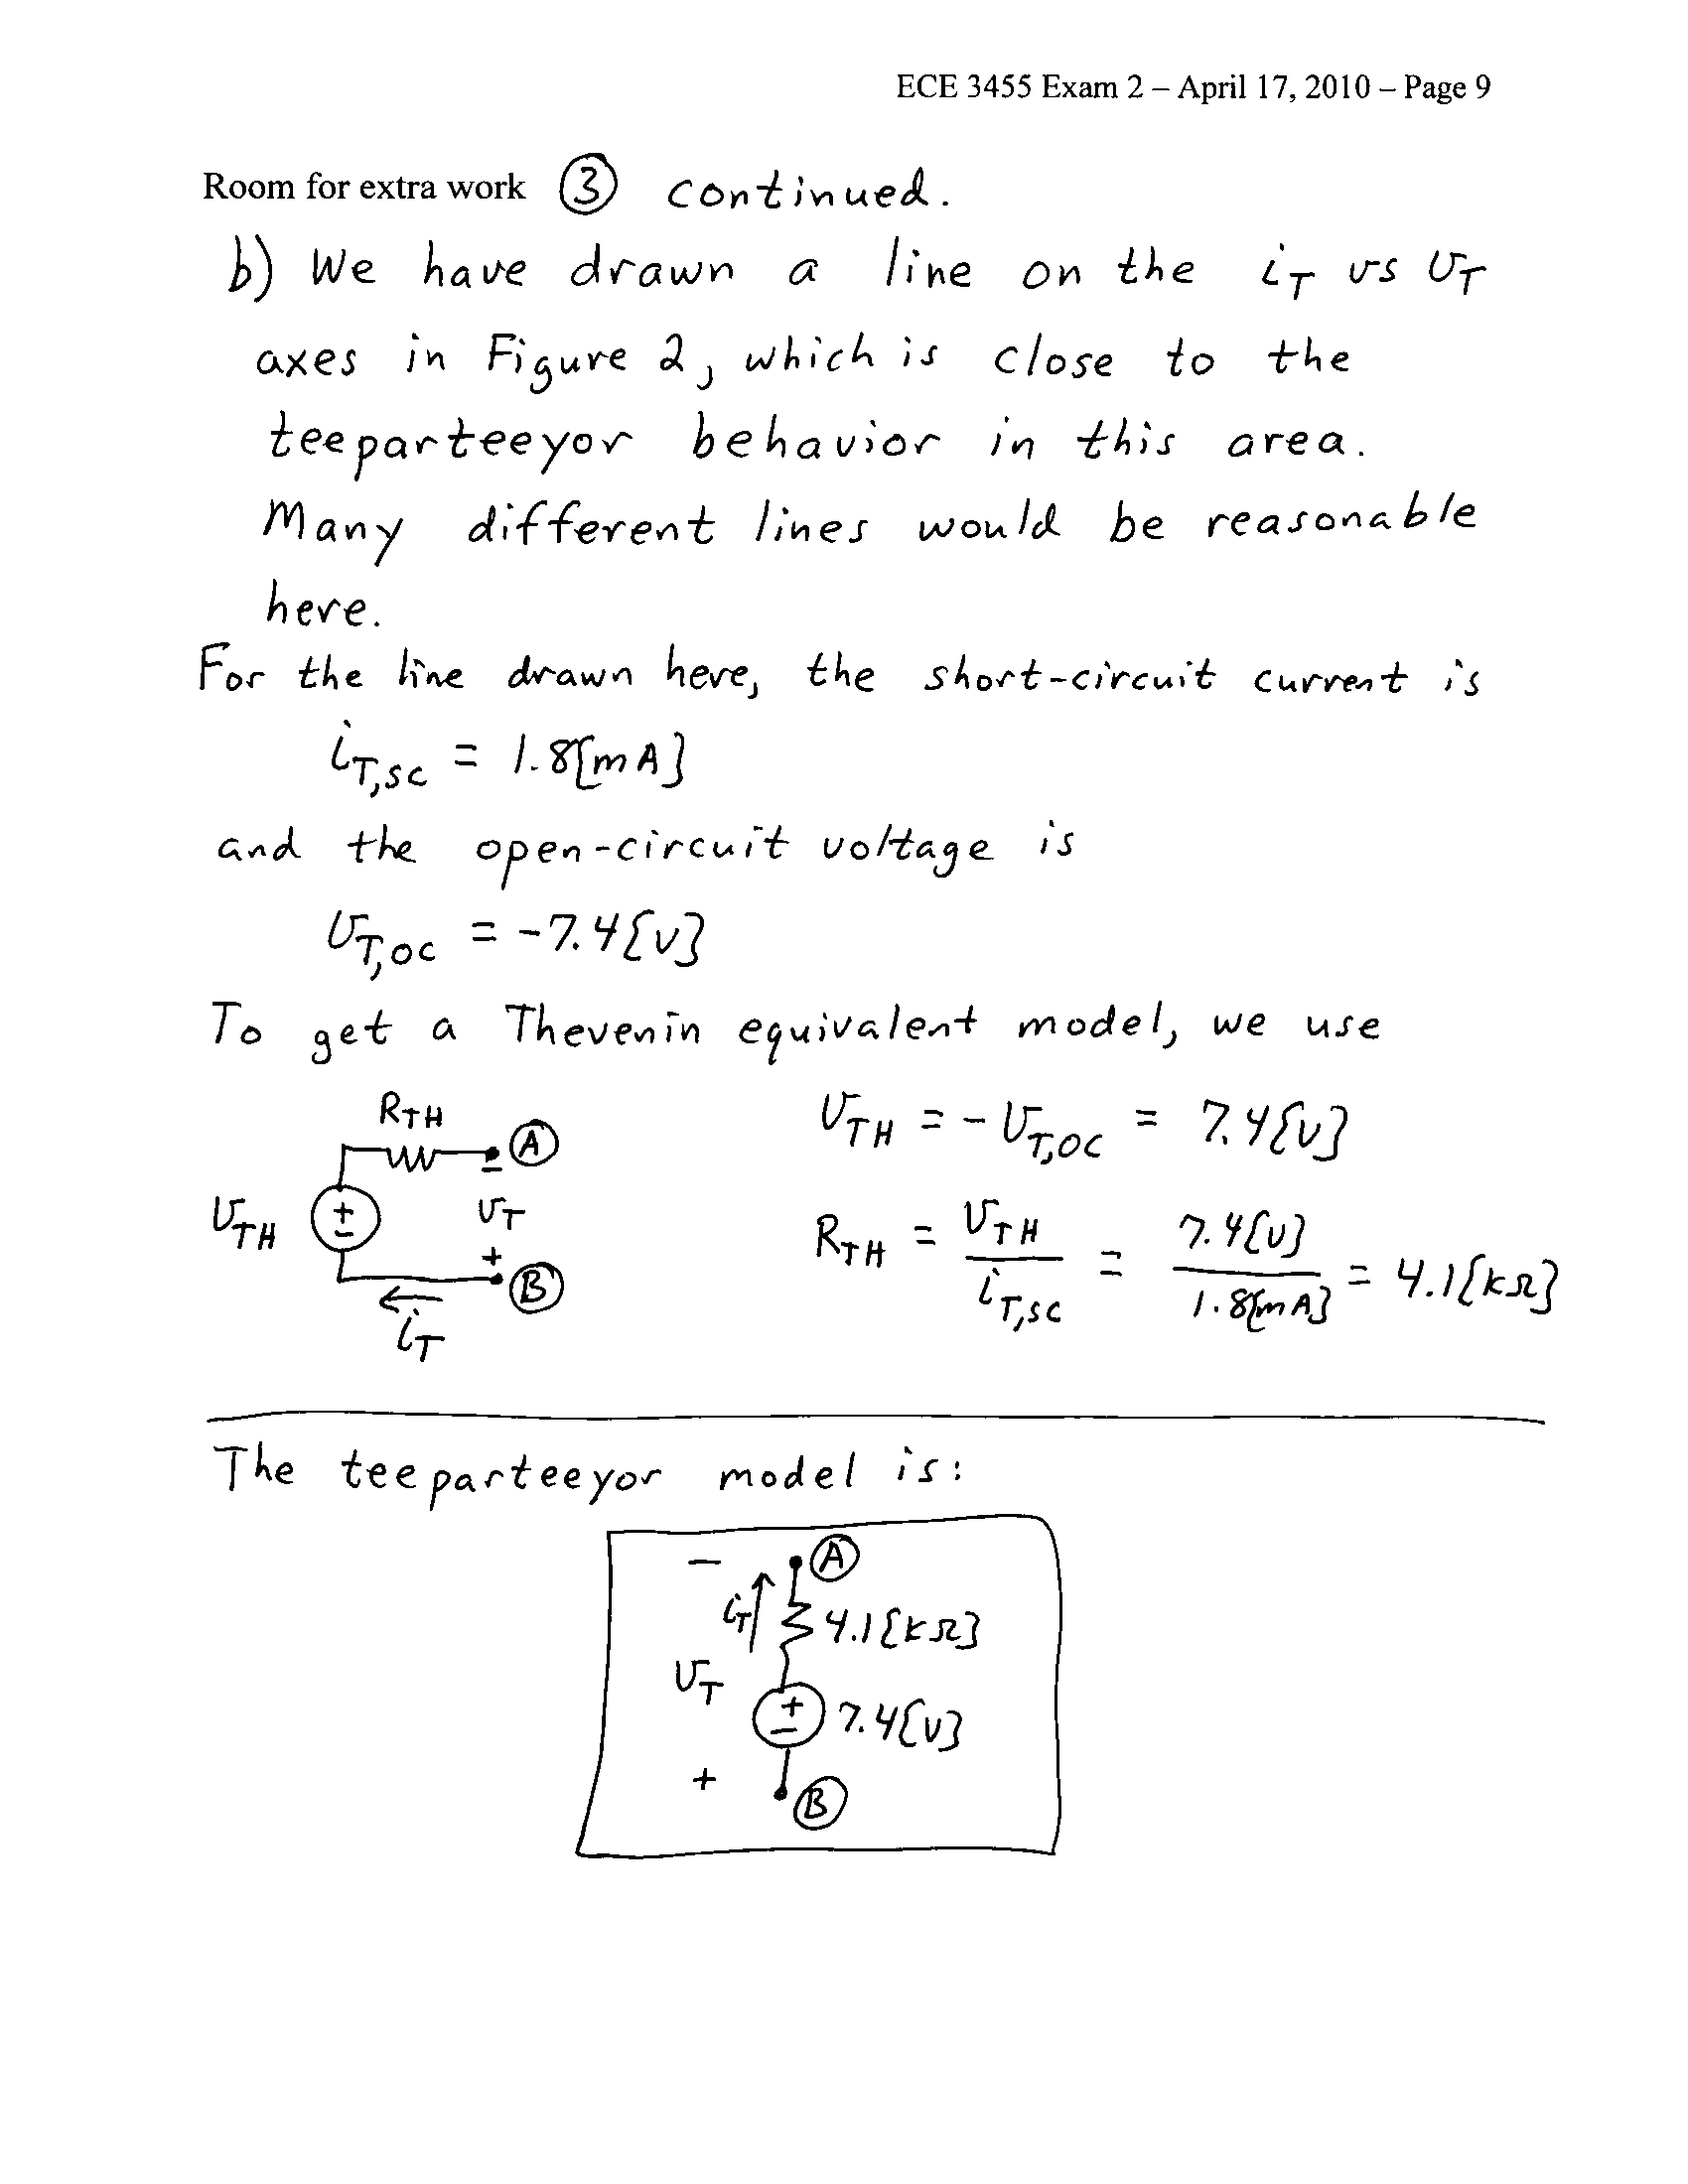 ECE 3455 Exam 2 – April 17, 2010 – Page 9
Room for extra work ③ continued.
b) We have drawn a line on the iT vs vT
axes in Figure 2, which is close to the
teeparteeyor behavior in this area.
Many different lines would be reasonable
here.
For the line drawn here, the short-circuit current is
iT,SC = 1.8[mA]
and the open-circuit voltage is
vT,OC = -7.4[V]
To get a Thevenin equivalent model, we use
RTH
A
vTH = -vT,OC = 7.4[V]
-
vTH
+
-
vT
RTH = vTH / iT,SC = 7.4[V] / 1.8[mA] = 4.1[kΩ]
+
B
iT
The teeparteeyor model is:
- A
iT 4.1[kΩ]
vT
+
- 7.4[V]
+
B